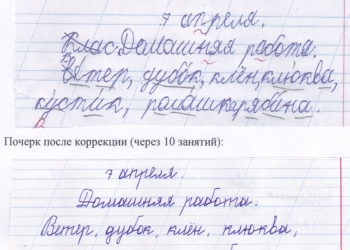 7 апреля.
Клас Домашняя работа.
Ветер, дубок, клён, клюква,
кустик, ромашка, рябина.
Почерк после коррекции (через 10 занятий):
7 апреля.
Домашняя работа.
Ветер, дубок, клён, клюква,